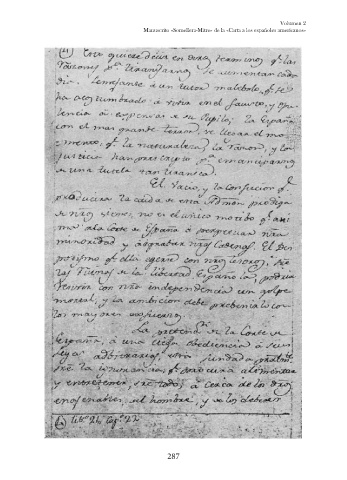 Volumen 2
Manuscrito «Semillera-Mitre» de la «Carta a los españoles americanos»
Esto quiere decir en otros terminos qᵉ las
razones pᵃ tiranizarnos se aumentan cada
dia. Semejante a un tutor malebolo qᵉ se
ha acostumbrado a vivir en el fausto, y opu-
lencia a expensas de su Pupilo; la España
con el mas grande terror, ve llegar el mo-
mento, qᵉ la naturaleza, la razon, y la
justicia han prescripto pᵃ emanciparnos
de una tutela tan tiranica.
El vacio, y la confusion qᵉ
producira la caida de esta Admon prodiga
de nros tesoros, no es el unico motibo qᵉ ani-
ma a la Corte de España a perpetuar nra
minoridad y agrabar nras cadenas. El Des-
potismo qᵉ ella exerce con nros tesoros, sre
las ruinas de la libertad Española, podria
recivir con nra independencia un golpe
mortal, y la ambicion debe prebenirlo co-
n los mayores esfuerzos.
La pretensⁿ de la Corte de
España, a una ciega obediencia a sus
leyes arbitrarias, esta fundada pralmte
sre la ignorancia, qᵉ procura alimentar
y entretener, sre todo, a cerca de los dros
enagenables del hombre, y de los deberes
Lib. 26 Cap. 22
287